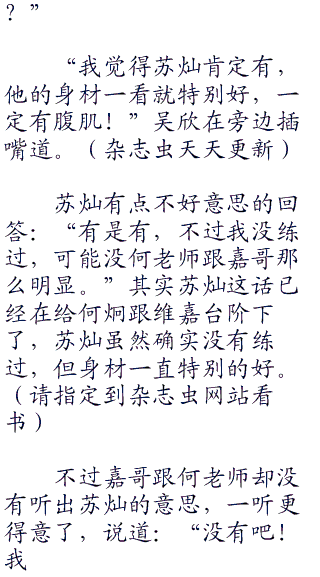 ？”
“我觉得苏灿肯定有，
他的身材一看就特别好，一
定有腹肌！”吴欣在旁边插
嘴道。（杂志虫天天更新）
苏灿有点不好意思的回
答：“有是有，不过我没练
过，可能没何老师跟嘉哥那
么明显。”其实苏灿这话已
经在给何炯跟维嘉台阶下
了，苏灿虽然确实没有练
过，但身材一直特别的好。
（请指定到杂志虫网站看
书）
不过嘉哥跟何老师却没
有听出苏灿的意思，一听更
得意了，说道：“没有吧！
我